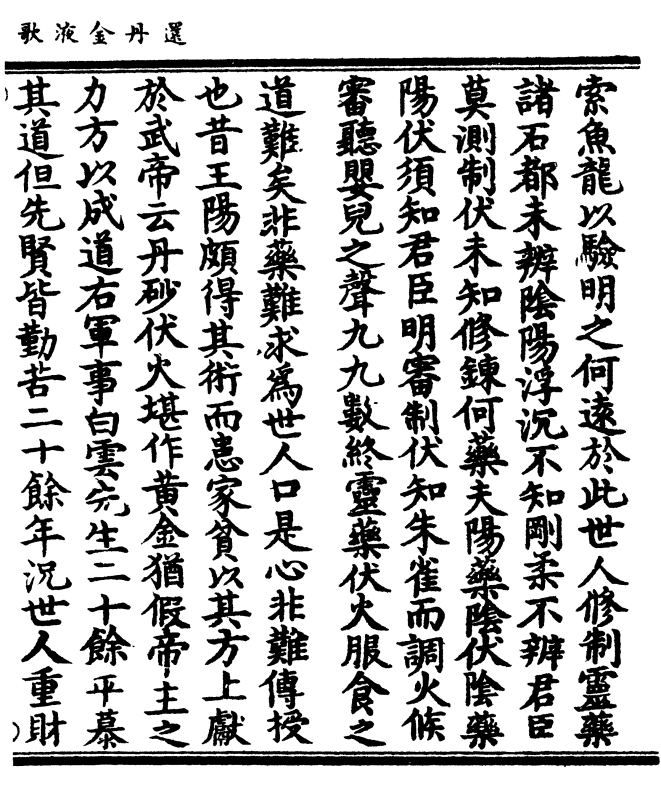 還丹金液歌
索魚龍以驗明之何遠於此世人修制靈藥
諸石都未辨陰陽浮沉不知剛柔不辨君臣
莫測制伏未知修鍊何藥夫陽藥陰伏陰藥
陽伏須知君臣明審制伏知朱雀而調火候
審聽嬰兒之聲九九數終靈藥伏火服食之
道難矣非藥難求為世人口是心非難傳授
也昔王陽頗得其術而患家貧以其方上獻
於武帝云丹砂伏火堪作黃金猶假帝主之
力方以成道右軍事白雲先生二十餘年慕
其道但先賢皆勤苦二十餘年況世人重財